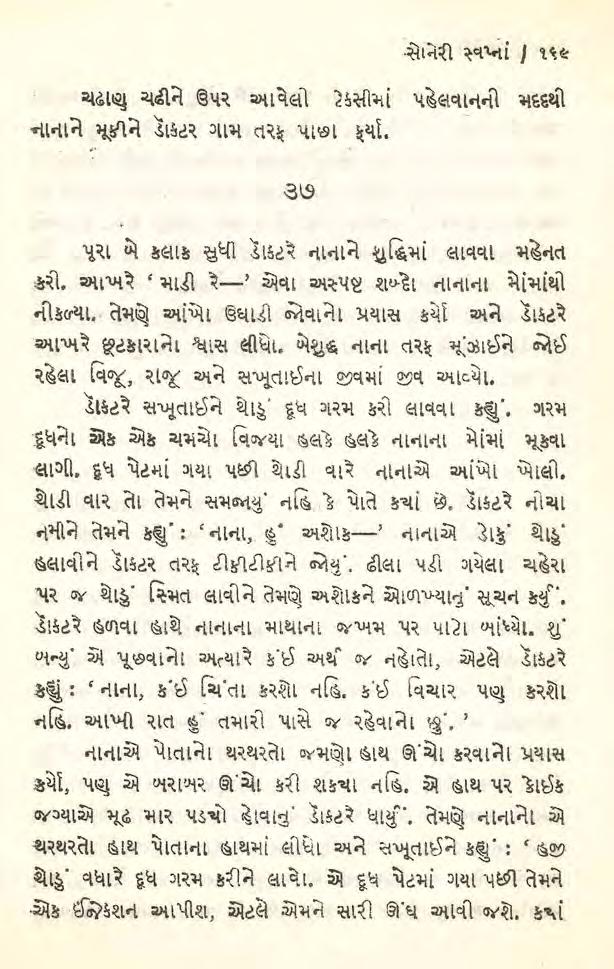 સોનેરી સ્વપ્નાં / ૧૬૯
ચઢાણુ ચઢીને ઉપર આવેલી ટેકસીમાં પહેલવાનની મદદથી
નાનાને મૂકીને ડૉકટર ગામ તરફ પાછા ફર્યા.
૩૭
પૂરા બે કલાક સુધી ડૉકટરે નાનાને શુદ્ધિમાં લાવવા મહેનત
કરી. આખરે ‘ માડી રે—’ એવા અસ્પષ્ટ શબ્દો નાનાના મોંમાંથી
નીકળ્યા. તેમણે આંખો ઉઘાડી જોવાનો પ્રયાસ કર્યો અને ડૉકટરે
આખરે છૂટકારાનો શ્વાસ લીધો. બેશુદ્ધ નાના તરફ મૂંઝાઈને જોઈ
રહેલા વિજૂ, રાજૂ અને સખૂતાઈના જીવમાં જીવ આવ્યો.
ડૉકટરે સખૂતાઈને થોડું દૂધ ગરમ કરી લાવવા કહ્યું. ગરમ
દૂધનો એક એક ચમચો વિજયા હલકે હલકે નાનાના મોંમાં મૂકવા
લાગી. દૂધ પેટમાં ગયા પછી થોડી વારે નાનાએ આંખો ખોલી.
થોડી વાર તો તેમને સમજાયું નહિ કે પોતે કયાં છે. ડૉકટરે નીચા
નમીને તેમને કહ્યું : ‘નાના, હું અશોક—’ નાનાએ ડોકું થોડું
હલાવીને ડૉકટર તરફ ટીકીટીકીને જોયું. ઢીલા પડી ગયેલા ચહેરા
પર જ થોડું સ્મિત લાવીને તેમણે અશોકને ઓળખ્યાનું સૂચન કર્યું.
ડૉકટરે હળવા હાથે નાનાના માથાના જખમ પર પાટો બાંધ્યો. શું
બન્યું એ પૂછવાનો અત્યારે કંઈ અર્થ જ નહોતો, એટલે ડૉકટરે
કહ્યું : ‘નાના, કંઈ ચિંતા કરશો નહિ. કંઈ વિચાર પણ કરશો
નહિ. આખી રાત હું તમારી પાસે જ રહેવાનો છું. ’
નાનાએ પોતાનો થરથરતો જમણો હાથ ઊંચો કરવાનો પ્રયાસ
કર્યો, પણ એ બરાબર ઊંચો કરી શકયા નહિ. એ હાથ પર કોઈક
જગ્યાએ મૂઢ માર પડયો હોવાનું ડૉકટરે ધાર્યું. તેમણે નાનાનો એ
થરથરતો હાથ પોતાના હાથમાં લીધો અને સખૂતાઈને કહ્યું : ‘ હજી
થોડું વધારે દૂધ ગરમ કરીને લાવો. એ દૂધ પેટમાં ગયા પછી તેમને
એક ઇંજેકશન આપીશ, એટલે એમને સારી ઊંઘ આવી જશે. કયાં